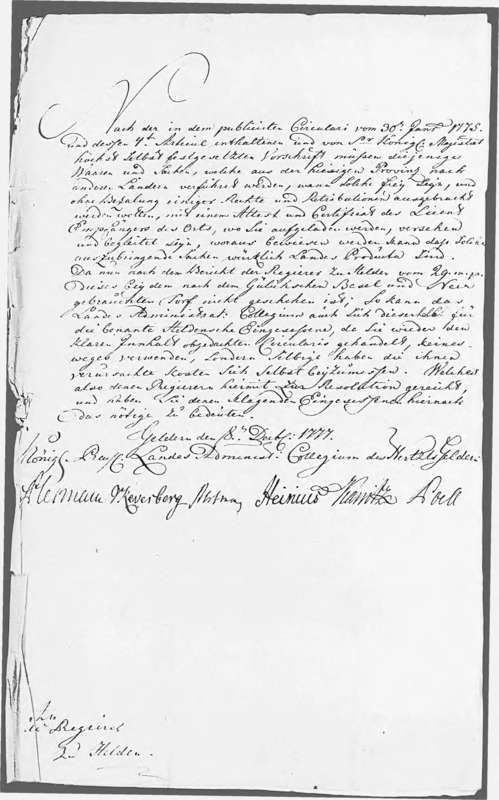 Nach der in dem publicirten Circulari vom 30t. Janr. 1775.
und deßen 4t. Articul enthaltenen und von Sr. Königl. Majestät
höchst Selbst festgesetzten Vorschrift müßen diejenige
Waaren und Sachen, welche aus der hiesigen Provinz nach
anderen Ländern verführet werden, wann solche frey seyn, und
ohne Bezahlung einiger Rechte und Retributionen ausgebracht
werden wollen, mit einem Attest und Certificat des Licent
Empfängers des Orts, wo Sie aufgeladen werden, versehen
und begleitet seyn, woraus bewiesen werden kand daß solche
auszubringende Sachen würklich Landes Producta sind.
Da nun nach dem Bericht der Regierer zu Helden vom 29. m. p.
dieses bey dem nach dem Gülichschen Besel und Neer
gebrauchten Torf nicht geschehen ist; So kan das
Landes Administrat: Collegium auch sich dieserhalb für
die benante Heldensche Eingeseßene, da Sie wieder den
klaren Innhalt obgedachten Circularis gehandelt, keines-
weges verwenden, sondern selbige haben die ihnen
verursachte Kosten sich selbst beyzumeßen. Welches
also denen Regierern hiermit zur Resolution gereicht,
und haben Sie denen klagenden Eingeseßenen hiernach
das nötige zu bedeuten.
Geldern den 8t. Decbr. 1777.
Königl. Preuß. Landes Administ. Collegium des Hertz. Geldern
v Keverberg Heinius Coell
An
die Regierer
zu Helden.